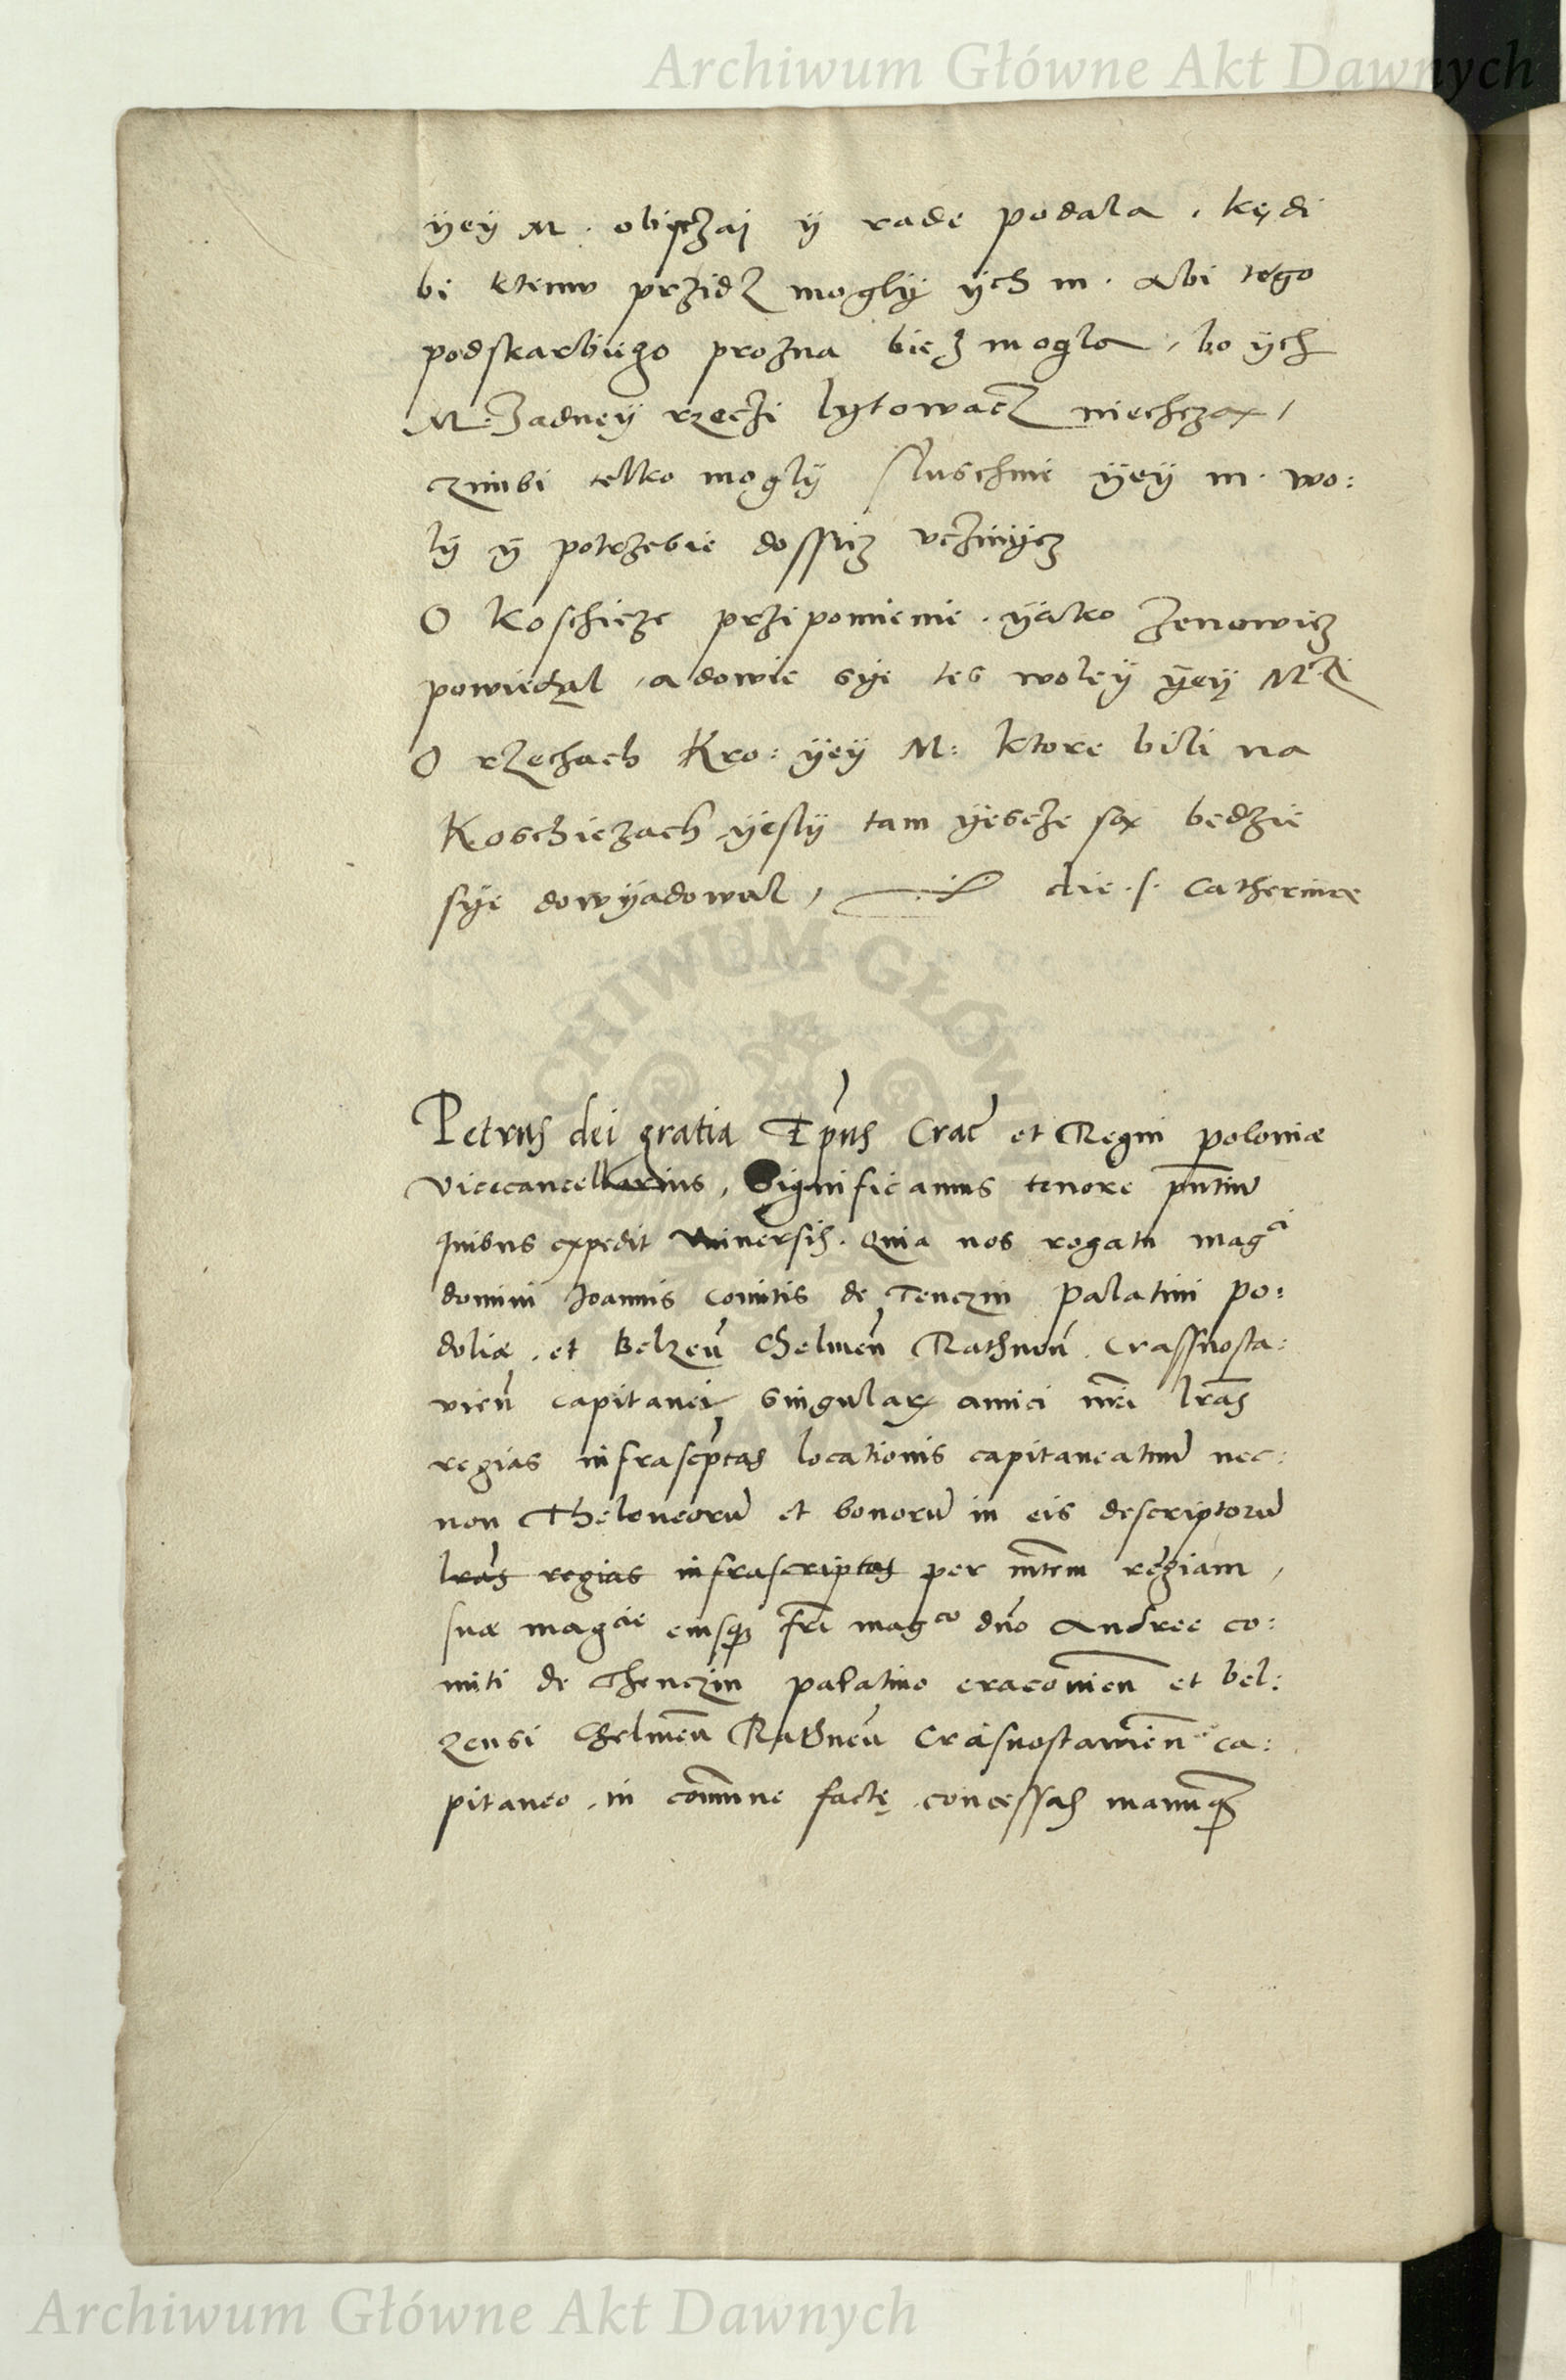 Archiwum Główne Akt Dawnych
ÿeÿ M. obiczai ÿ rade podala, kędi
bi ktemu przidz moglÿ ÿch m. Abi tego
podskarbiego prozna biez mogla, bo ÿch
M. Zadneÿ rzeczi lÿtowacz niechcza,
czimbi telko moglÿ sluschnie ÿeÿ m. wo:
lÿ ÿ potrzebie dossicz vczinÿcz
O koschicze przipomienie. ÿako Zenowicz
powiedzal, a dowie sÿe tes woleÿ ÿeÿ M.
O rzechach Kro: ÿeÿ M: ktore bili na
Koschiczach ÿeslÿ tam ÿescze sa bedzie
sÿe dowÿadowal, die .s. Catherinæ
ARCHIWUM GŁÓWNE
Petrus dei gratia Ep̃us Crac̃ et Regni poloniæ
vicecancellarius, Significamus tenore pñtiũ
quibus expedit vniuersis. Quia nos rogatu mag^ci
domini Joannis comitis de Tenczin palatini po:
doliæ. et Belzeñ Chelmeñ Rathneñ. Crassnosta:
vieñ capitanei, singulari amici nr̃i lr̃as
regias infrascp̃tas locationis capitaneatuũ nec:
non Theloneorũ et bonorũ in eis descriptorũ
lr̃as regias infrascriptas per mtem regiam,
suæ mag^cie eiusq; fr̃i mag^co dño Andree co:
miti de Thenczin palatino cracovieñ et bel:
zensi Chelmeñ Rathneñ Crasnostawieñ ca:
pitaneo. in com̃une factę. concessas manuq;
Archiwum Główne Akt Dawnych